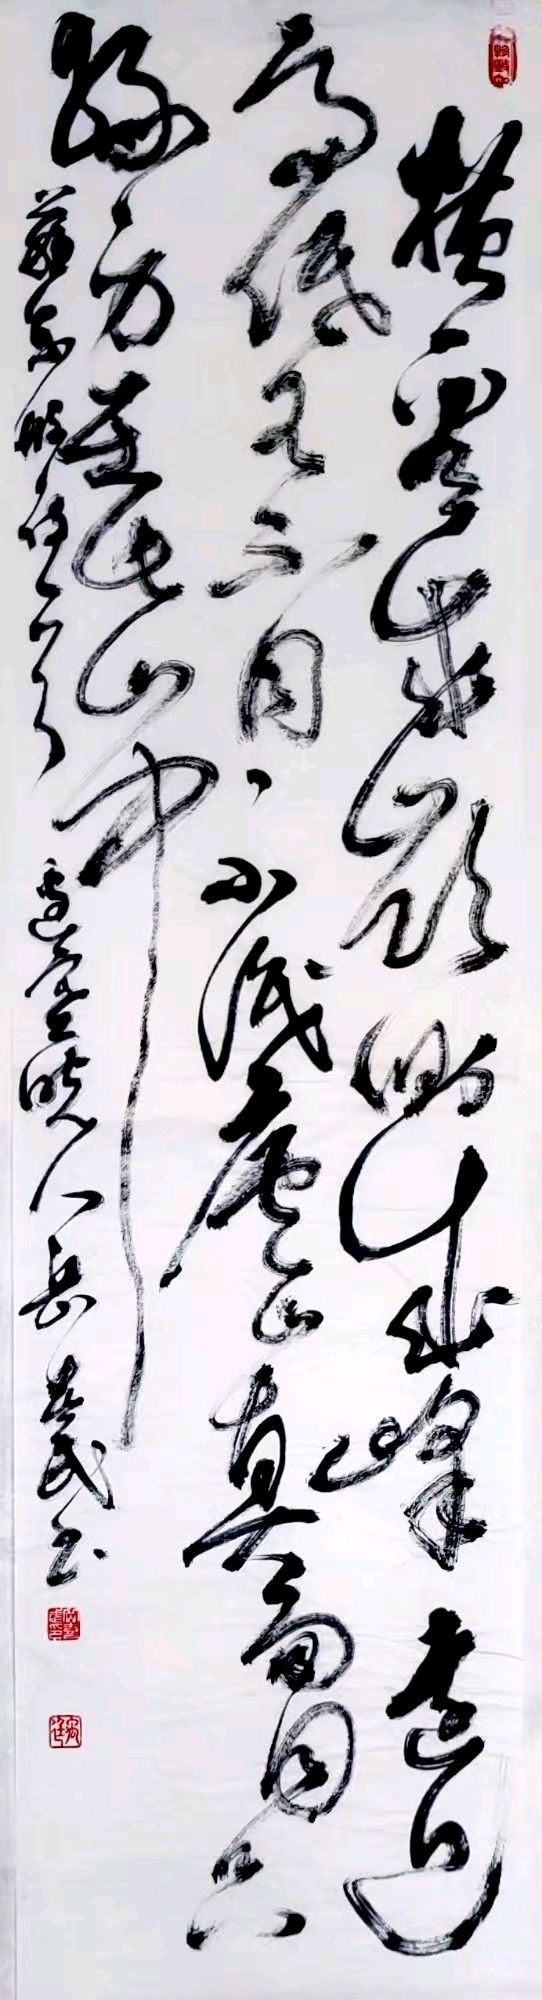 横看成岭侧成峰远近
高低各不同不识庐山真面目只
缘身在此山中
苏东坡诗一首
岳春民书